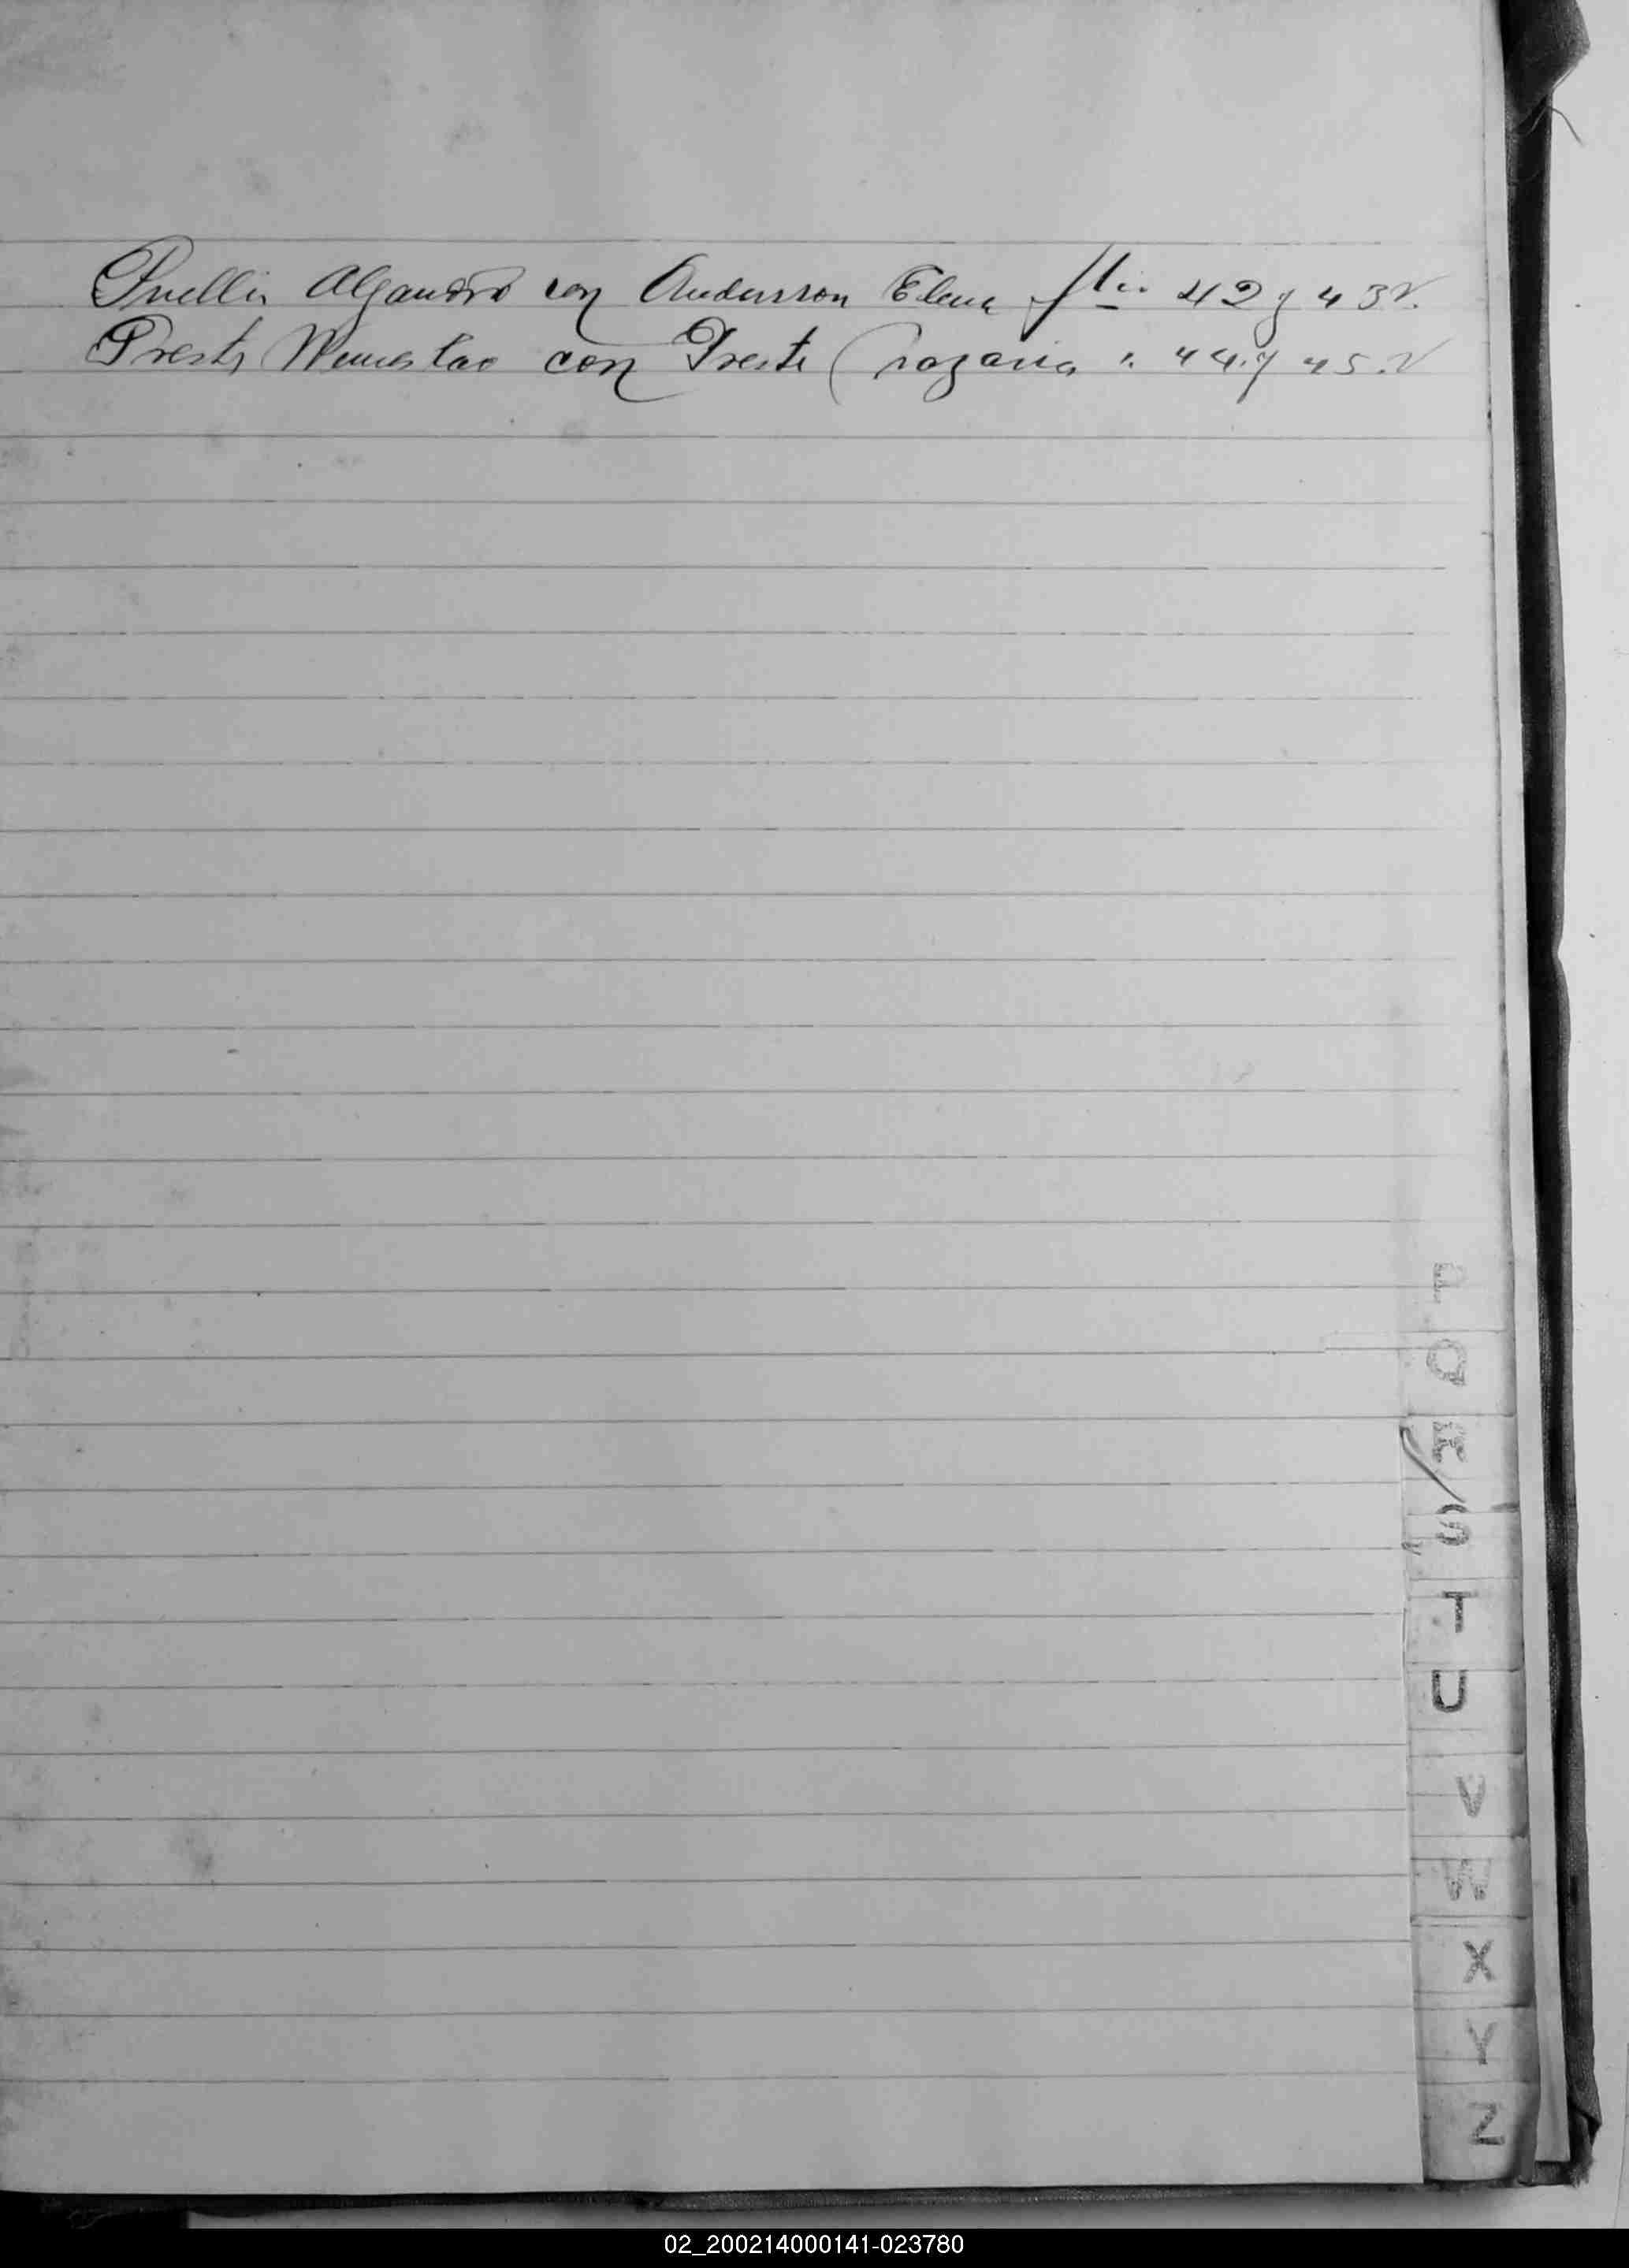 Puellis Aljandro con Andersson Elena flio 42 y 43 v.
Prests Wenceslao con Preste Nazaria " 44 y 45. v
P
Q
R
S
T
U
V
W
X
Y
Z
02_200214000141-023780